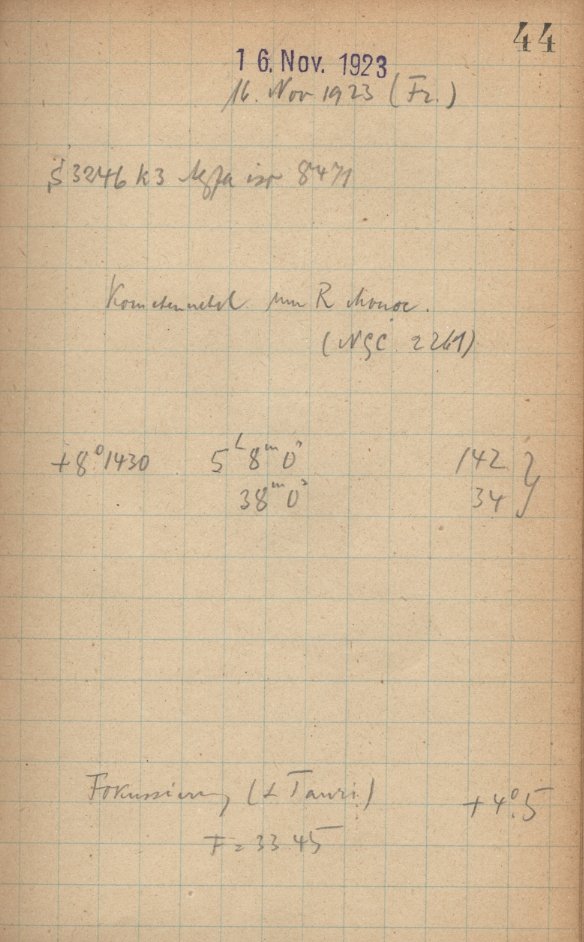 44
16. Nov. 1923
16. Nov 1923 (Fr.)
S 3246 k3 Agfa iso 8471
Kometennebel um R Monoc.
(NGC 2261)
+8°1430 5ʰ 8ᵐ 0ˢ 142 }
38ᵐ 0ˢ 34
Fokussierung (α Tauri) +4°.5
F = 33.45